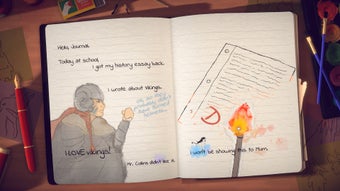 Hello, Journal.
Today at school,
I got my history essay back.
I wrote about vikings.
I LOVE vikings!
Mr. Collins didn't like it.
I won't be showing this to Mum.